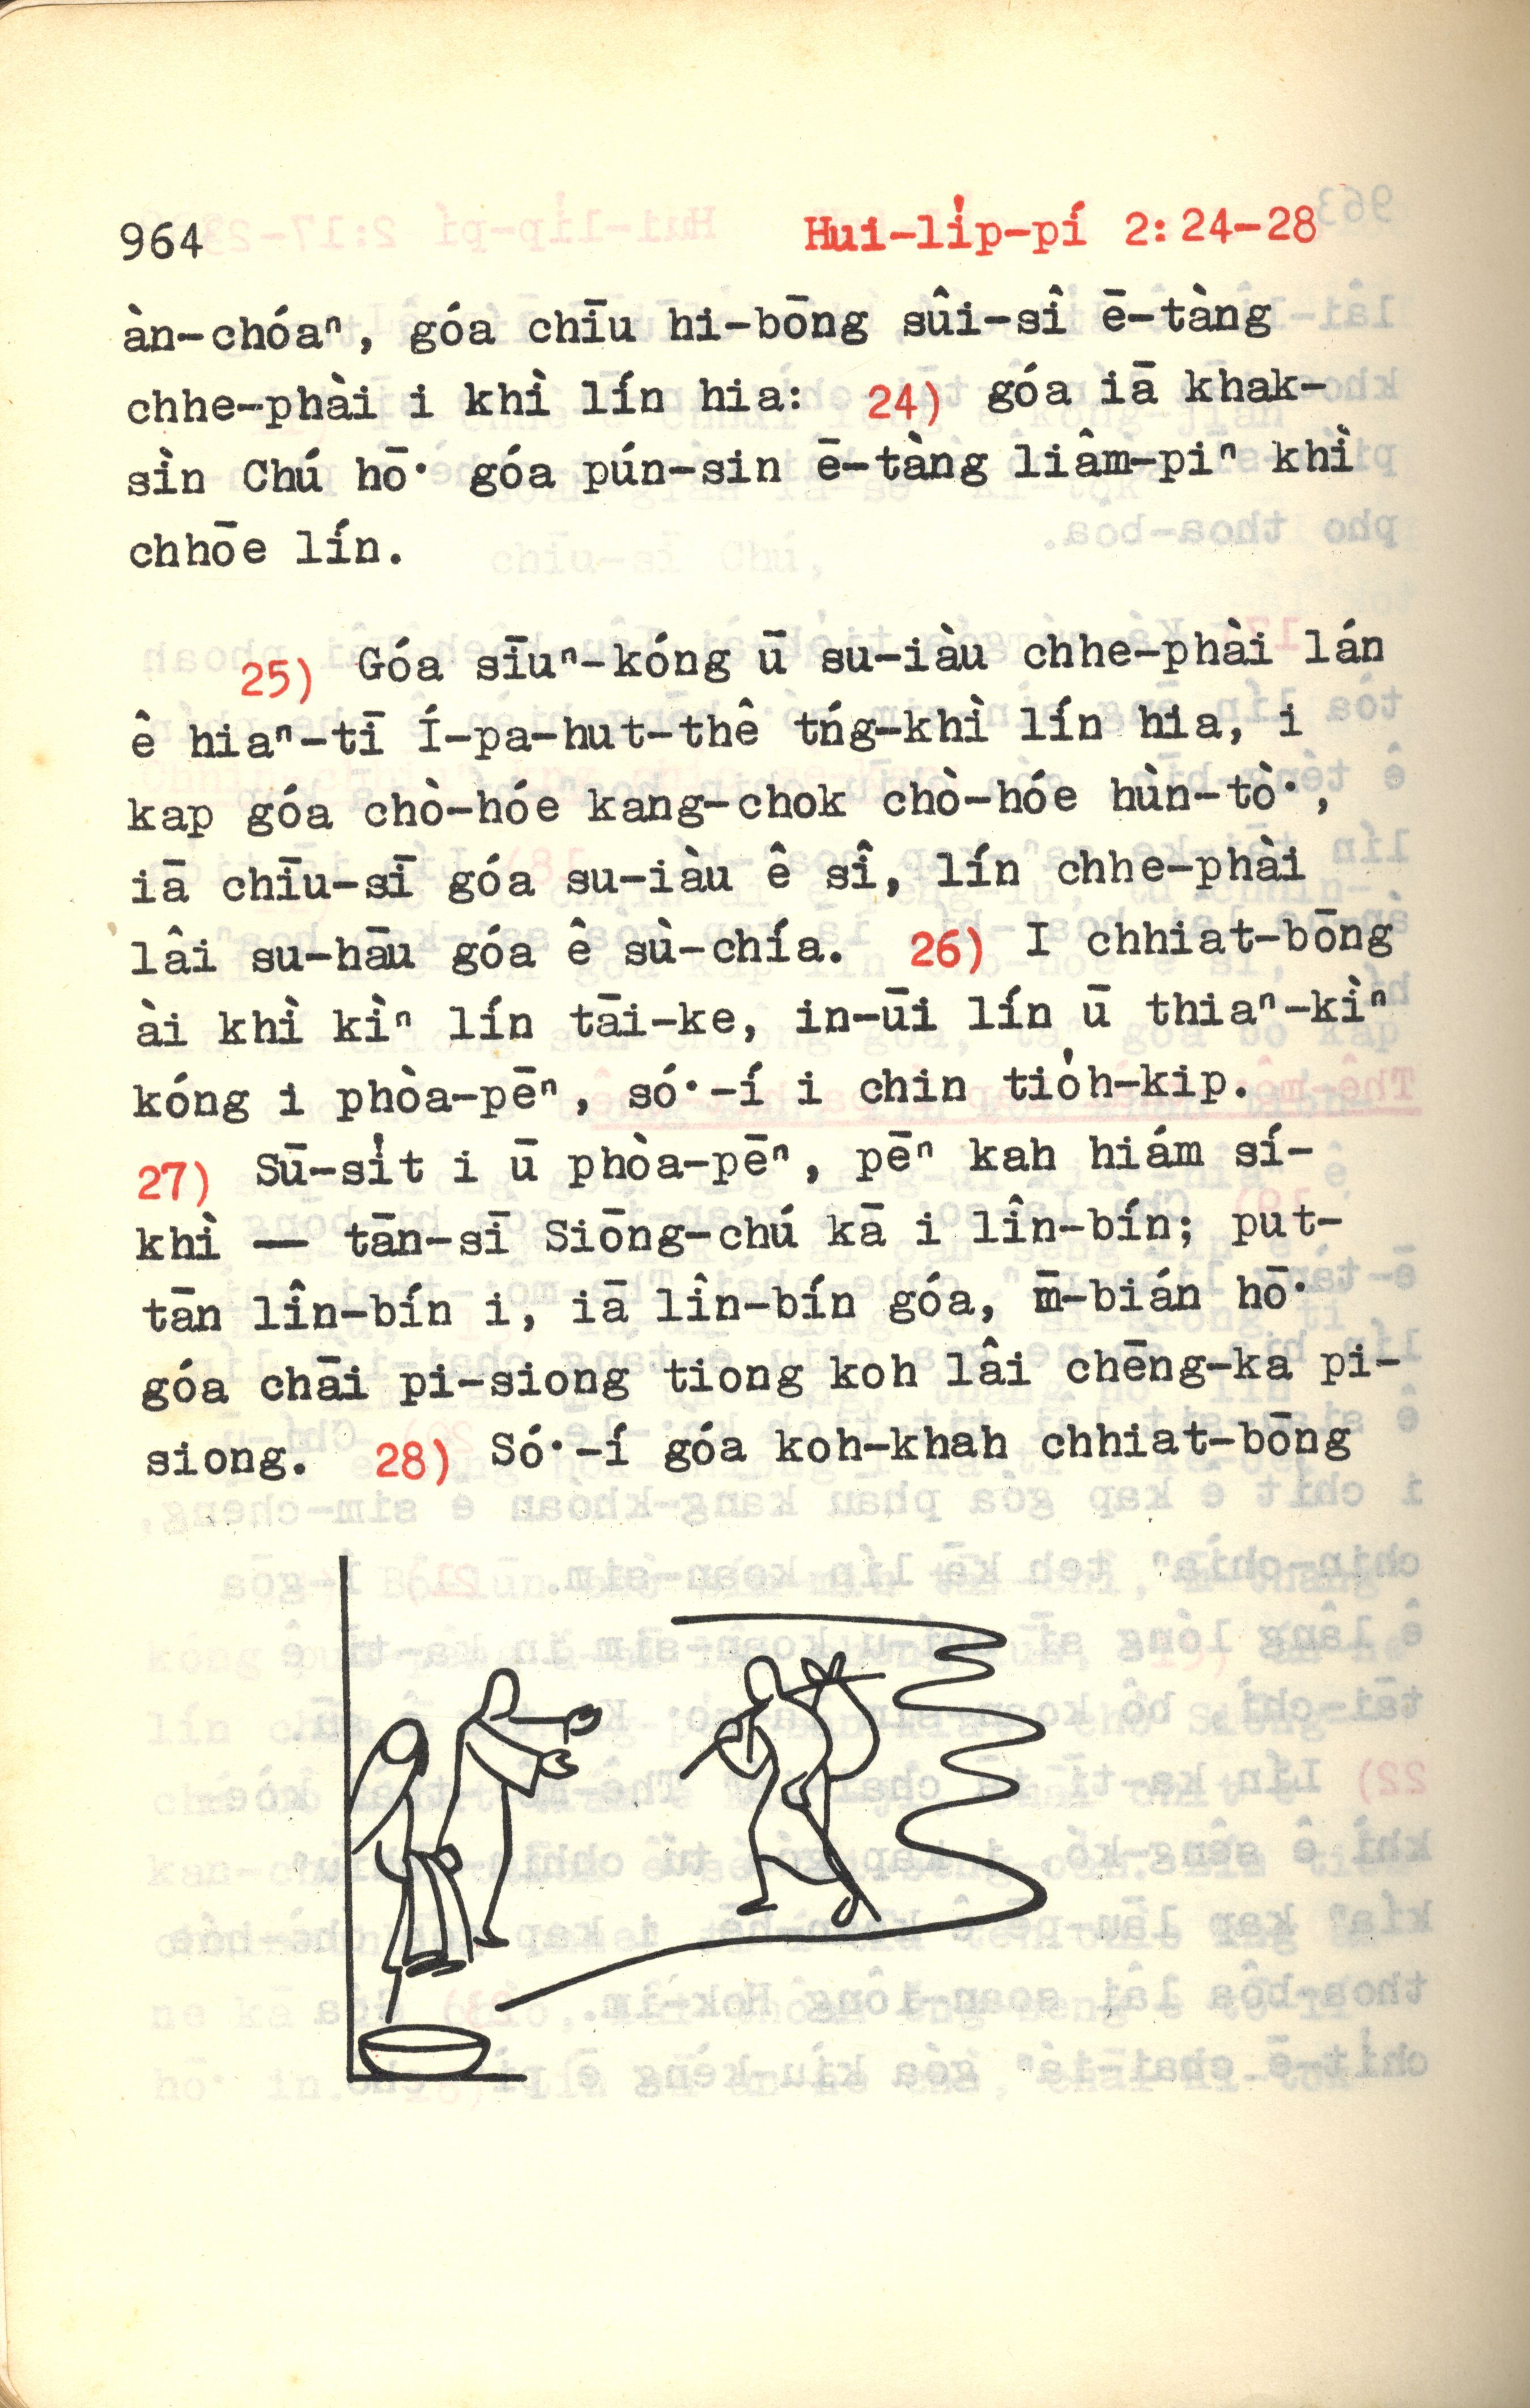 964 Hui-li̍p-pí 2:24-28
àn-chóaⁿ, góa chīu hi-bōng sûi-sî ē-tàng
chhe-phài i khì lín hia: 24) góa iā khak-
sìn Chú hō· góa pún-sin ē-tàng liâm-piⁿ khì
chhōe lín.
25) Góa sīuⁿ-kóng ū su-iàu chhe-phài lán
ê hiaⁿ-tī Í-pa-hut-thê tńg-khì lín hia, i
kap góa chò-hóe kang-chok chò-hóe hùn-tò·,
iā chīu-sī góa su-iàu ê sî, lín chhe-phài
lâi su-hāu góa ê sù-chía. 26) I chhiat-bōng
ài khì kìⁿ lín tāi-ke, in-ūi lín ū thiaⁿ-kìⁿ
kóng i phòa-pēⁿ, só·-í i chin tio̍h-kip.
27) Sū-si̍t i ū phòa-pēⁿ, pēⁿ kah hiám sí-
khì — tān-sī Siōng-chú kā i lîn-bín; put-
tān lîn-bín i, iā lîn-bín góa, m̄-bián hō·
góa chāi pi-siong tiong koh lâi chēng-ka pi-
siong. 28) Só·-í góa koh-khah chhiat-bōng